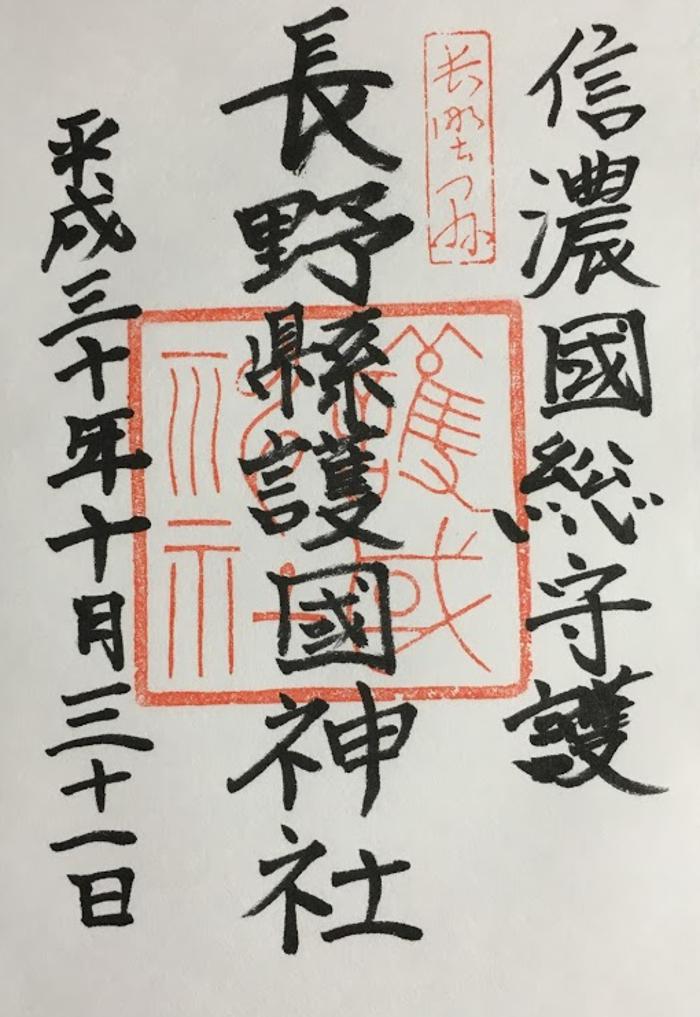 信濃國総守護
長野縣
長野縣護國神社
平成三十年十月三十一日